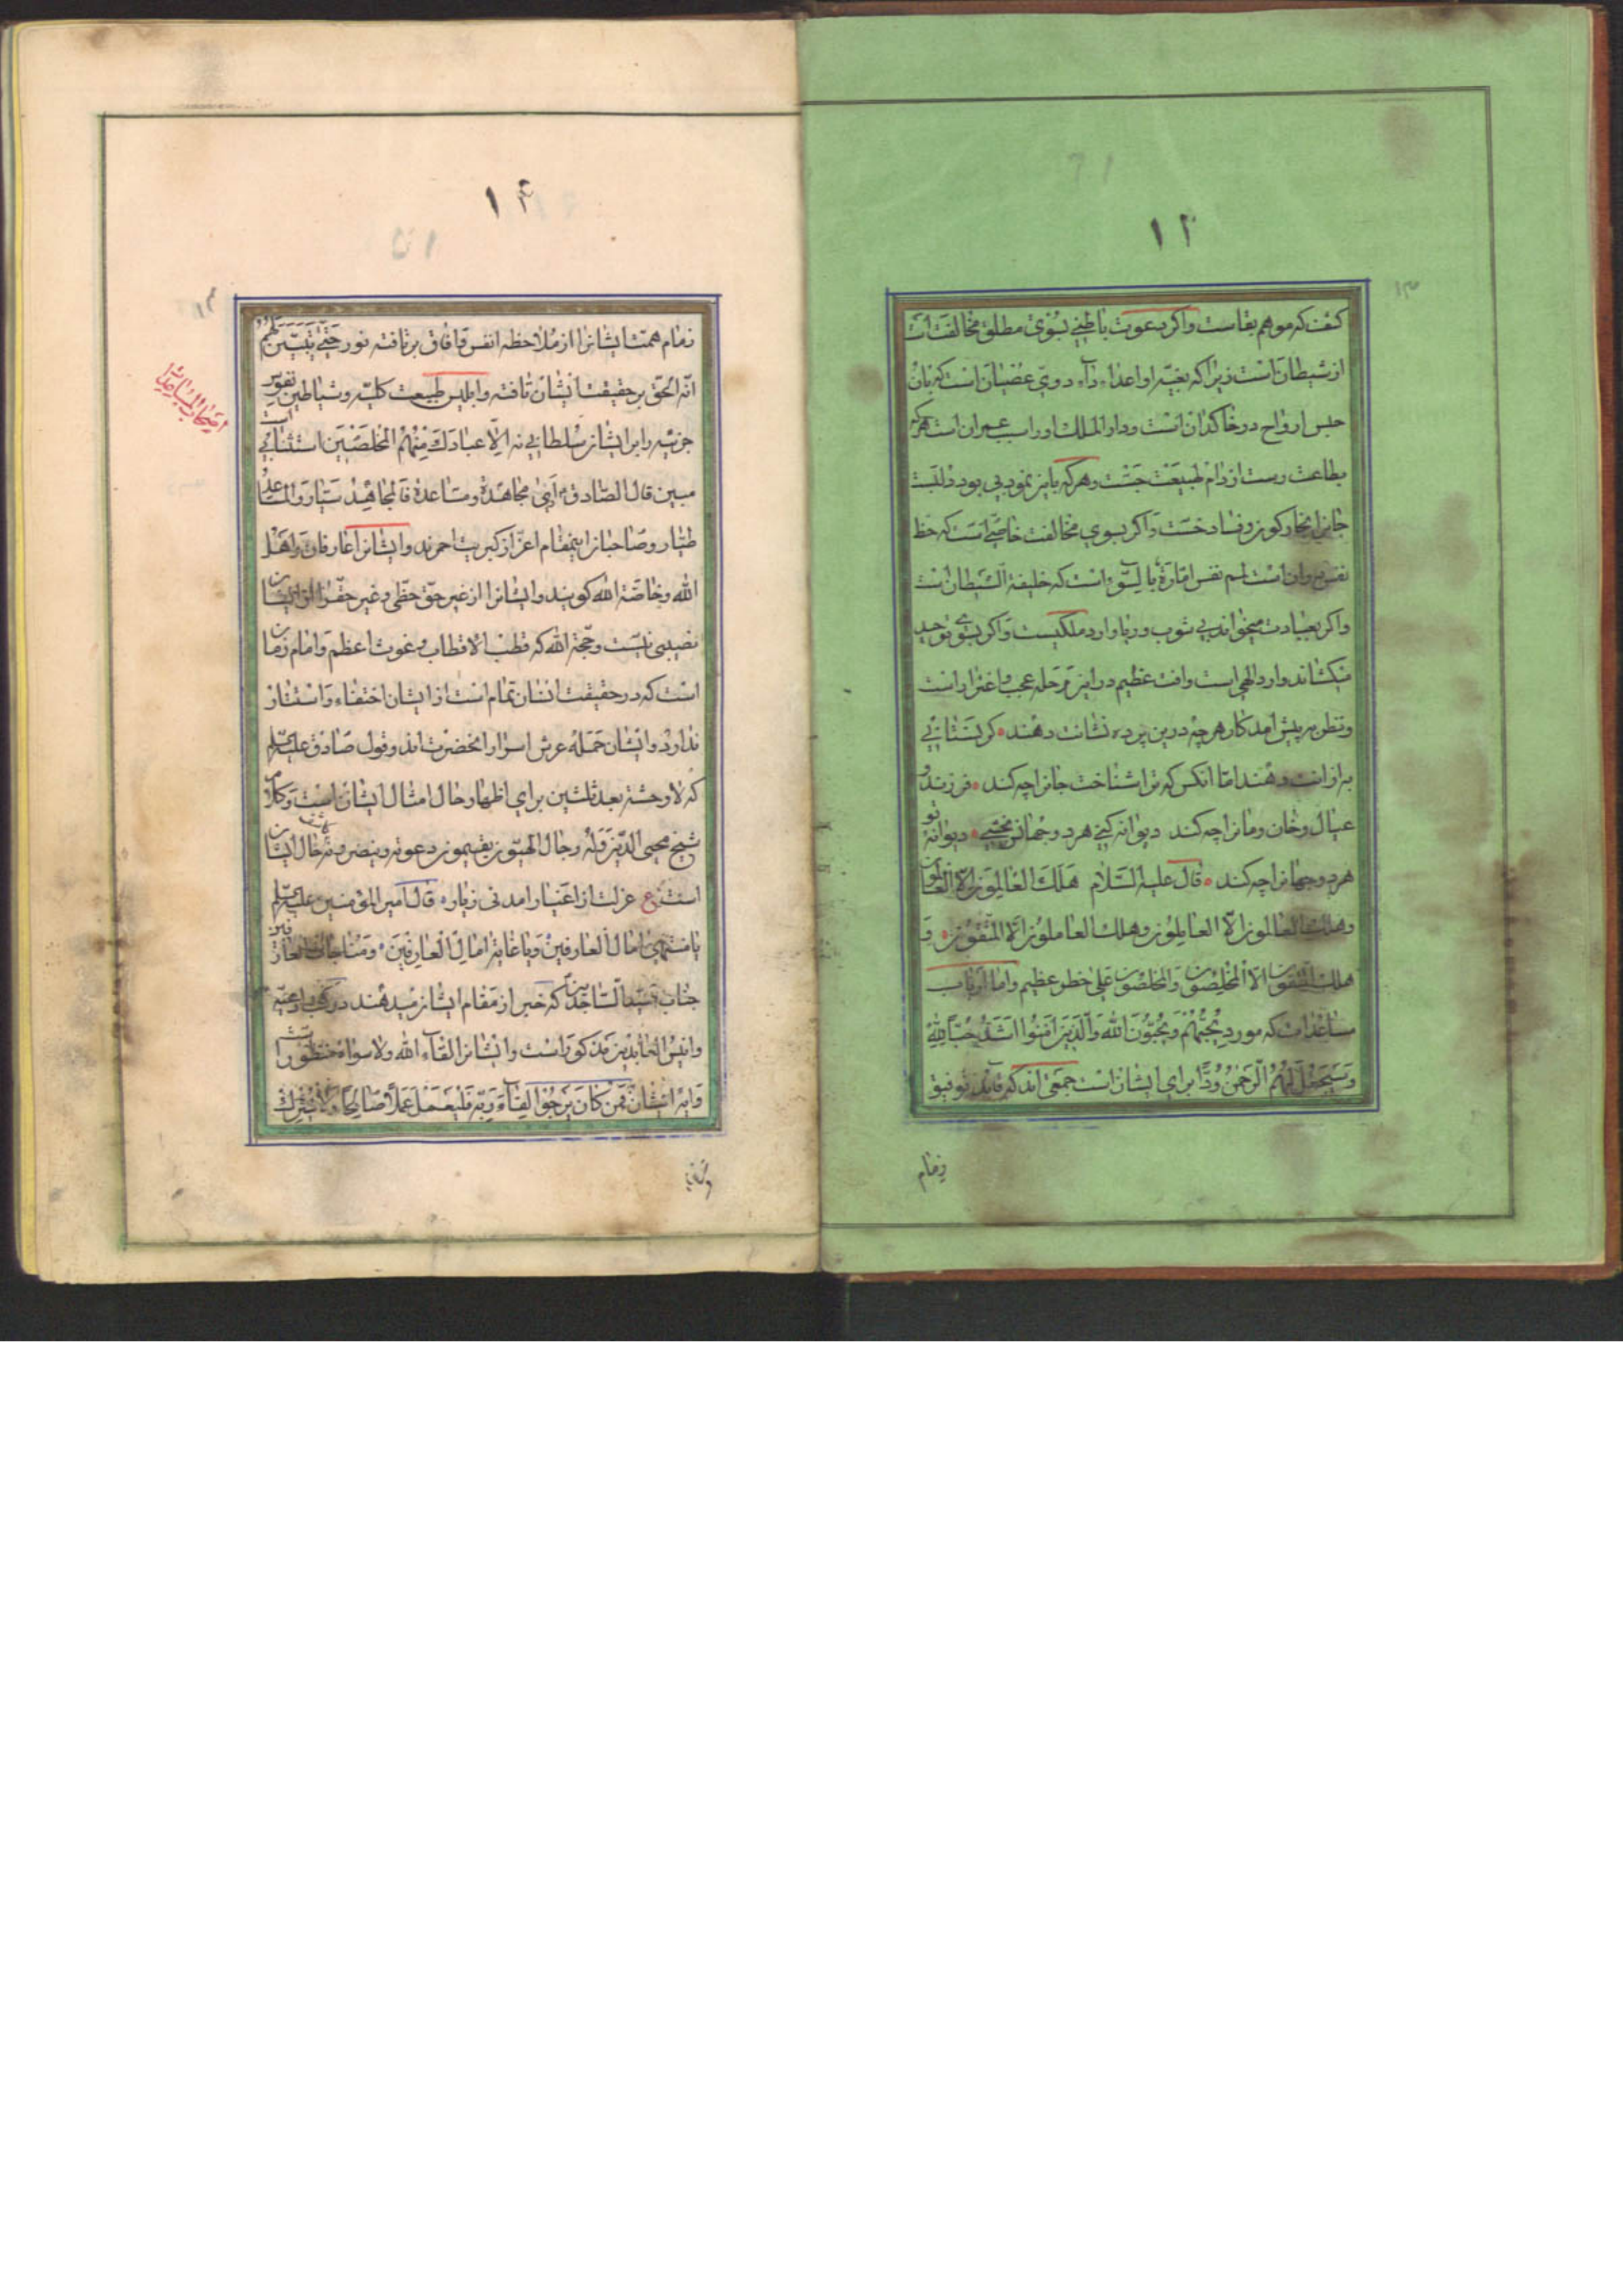 ۱۳
کفت که موهم بقاست واکر بدعوت باطنی بسوی مطلق مخالفت است
از شیطان است زیرا که بغیه او اعداء داء دوی عصیان است که بان
حبس ارواح در خاکدان است ودار الملک او را سبب عمران است هرکه
بطاعت رست از دام طبیعت جست وهرکه باین نمود بی بود دل بست
جانرا بخار کون وفساد خست واکر بسوی مخالفت خاصی است که حظ
نفس در ان است اسم نفس امارة بالسوء است که خلیفة الشیطان است
واکر بعبادت میخواند بی شوب وریا وارد ملکیست واکر بسوی توحید
میکشاند وارد الهی است وافت عظیم در این مرحله عجب و اغترار است
ونظر بر پیش امد کار هرچه درین پرده نشانت دهند کر بستانی
به از انت دهند اما انکس که ترا شناخت جانرا چه کند فرزند و
عیال وخان ومانرا چه کند دیوانه کنی هر دو جهانش بخشی دیوانه تو
هر دو جهانرا چه کند قال علیه السلام هلک العالمون الا العالمون
وهلک العالمون الا العاملون وهلک العاملون الا المتقون و
هلک المتقون الا المخلصون والمخلصون علی خطر عظیم واما ارباب
مساعدات که مورد یحبهم ویحبون الله والذین امنوا اشد حبا لله
وسیجعل لهم الرحمن ودا برای ایشان است جمعی اند که قاید توفیق
زمام
۱۴
زمام همت ایشانرا از ملاحظه انفس وافاق بر تافته نور حتی یتبین لهم
انه الحق بر حقیقت ایشان تافته وابلیس طبیعت کلیه وشیاطین نفوس
جزئیه را بر ایشان سلطانی نه الا عبادک منهم المخلصین استثنائی است
مبین قال الصادق ع ای مجاهدة ومساعدة فالمجاهد سیار والمساعد
طیار وصاحبان اینمقام اعز از کبریت احمرند وایشانرا عارفان واهل
الله وخاصة الله کویند وایشانرا از غیر حق حظی وغیر حق را از ایشان
نصیبی نیست وحجة الله که قطب الاقطاب وغوث اعظم وامام زمان
است که در حقیقت انسان تمام است از ایشان اختفاء واستتار
ندارد وایشان حمله عرش اسرار انحضرت اند وقول صادق علیه السلام
که لا وحشة بعد ثلثین برای اظهار حال امثال ایشان است وکلام
شیخ محیی الدین وله رجال الهیون یقیمون دعوته وینصرونه کاشف حال ایشان
است ع عزلت از اغیار امد نی زیار قال امیر المؤمنین علیه السلام
یا منتهی امال العارفین ویا غایة امال العارفین ومناجات العارفین
جناب سید الساجدین که خبر از مقام ایشان میدهند در کتب ادعیه
وانیس العابدین مذکور است وایشانرا لقاء الله ولا سواه منظور است
وایه ایشان فمن کان یرجوا لقاء ربه فلیعمل عملا صالحا ولا یشرک